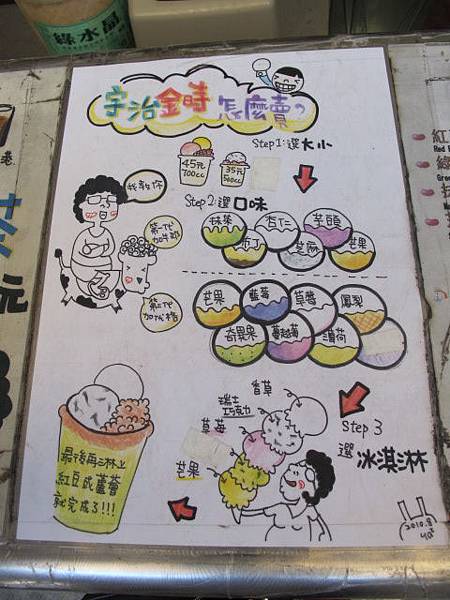 綠水晶
宇治金時怎麼賣?
Step 1:選大小
45元
700cc
35元
500cc
我教你
Step 2:選口味
抹茶
杏仁
芋頭
布丁
芝麻
芒果
芒果
藍莓
草莓
鳳梨
奇異果
蔓越莓
薄荷
Step 3
選冰淇淋
香草
瑞士
巧克力
草莓
芒果
最後再淋上
紅豆或蘆薈
就完成了!!!
2010.8
港
茶
元
紅
Red
綠
Gree